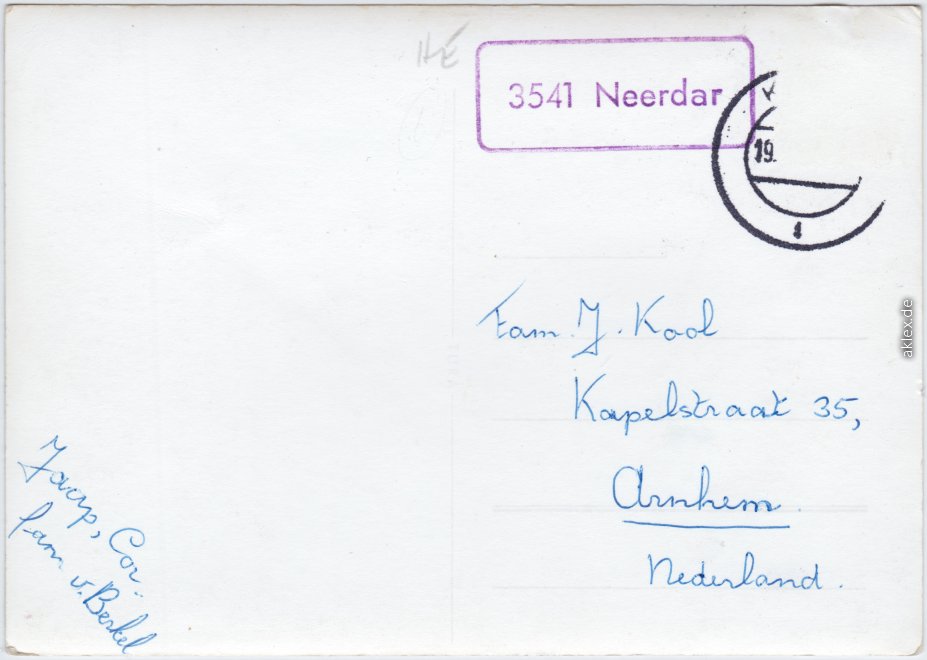 HE
3541 Neerdar
K
19.
Fam. J. Kool
Kapelstraat 35,
Arnhem.
Nederland.
Jaap, Cor.
fam v. Berkel
aklex.de